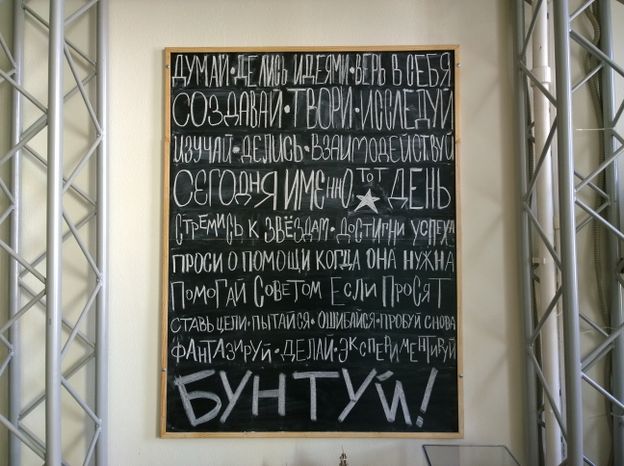 ДУМАЙ • ДЕЛИСЬ ИДЕЯМИ • ВЕРЬ В СЕБЯ
СОЗДАВАЙ • ТВОРИ • ИССЛЕДУЙ
ИЗУЧАЙ • ДЕЛИСЬ • ВЗАИМОДЕЙСТВУЙ
СЕГОДНЯ ИМЕННО ТОТ ДЕНЬ
СТРЕМИСЬ К ЗВЁЗДАМ • ДОСТИГНИ УСПЕХА
ПРОСИ О ПОМОЩИ КОГДА ОНА НУЖНА
ПОМОГАЙ СОВЕТОМ ЕСЛИ ПРОСЯТ
СТАВЬ ЦЕЛИ • ПЫТАЙСЯ • ОШИБАЙСЯ • ПРОБУЙ СНОВА
ФАНТАЗИРУЙ • ДЕЛАЙ • ЭКСПЕРИМЕНТИРУЙ
БУНТУЙ!